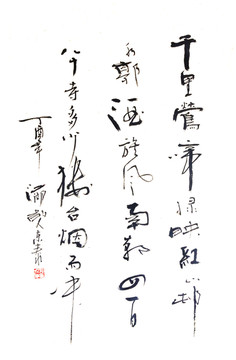 千里鶯啼緑映紅水邨
山郭酒旗风南朝四百
八十寺多少樓台烟雨中
丁酉年